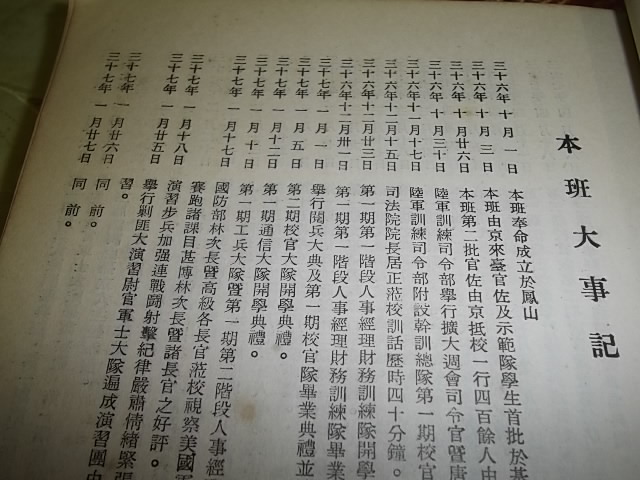 本班大事記
三十六年十月一日 本班奉命成立於鳳山
三十六年十月三日 本班由京來臺官佐及示範隊學生首批於基
三十六年十月廿六日 本班第二批官佐由京抵校一行四百餘人由
三十六年十月三十日 陸軍訓練司令部舉行擴大週會司令官暨唐
三十六年十一月十七日 陸軍訓練司令部附設幹訓總隊第一期校官
三十六年十二月十五日 司法院院長居正蒞校訓話歷時四十分鐘。
三十六年十二月廿三日 第一期第一階段人事經理財務訓練隊開學
三十六年十二月卅一日 第一期第一階段人事經理財務訓練隊畢業
三十七年一月一日 舉行閱兵大典及第一期校官隊畢業典禮並
三十七年一月五日 第二期校官大隊開學典禮。
三十七年一月十二日 第一期通信大隊開學典禮。
三十七年一月十日 第一期工兵大隊暨第一期第二階段人事經
三十七年一月十七日 國防部林次長暨高級各長官蒞校視察美國軍
賽跑諸課目甚博林次長暨諸長官之好評。
三十七年一月十八日 演習步兵加强連戰鬪射擊紀律嚴肅情緒緊張
三十七年一月廿五日 舉行剿匪大演習尉官軍士大隊遍成演習團由
習。
三十七年一月廿六日 同前。
三十七年一月廿七日 同前。